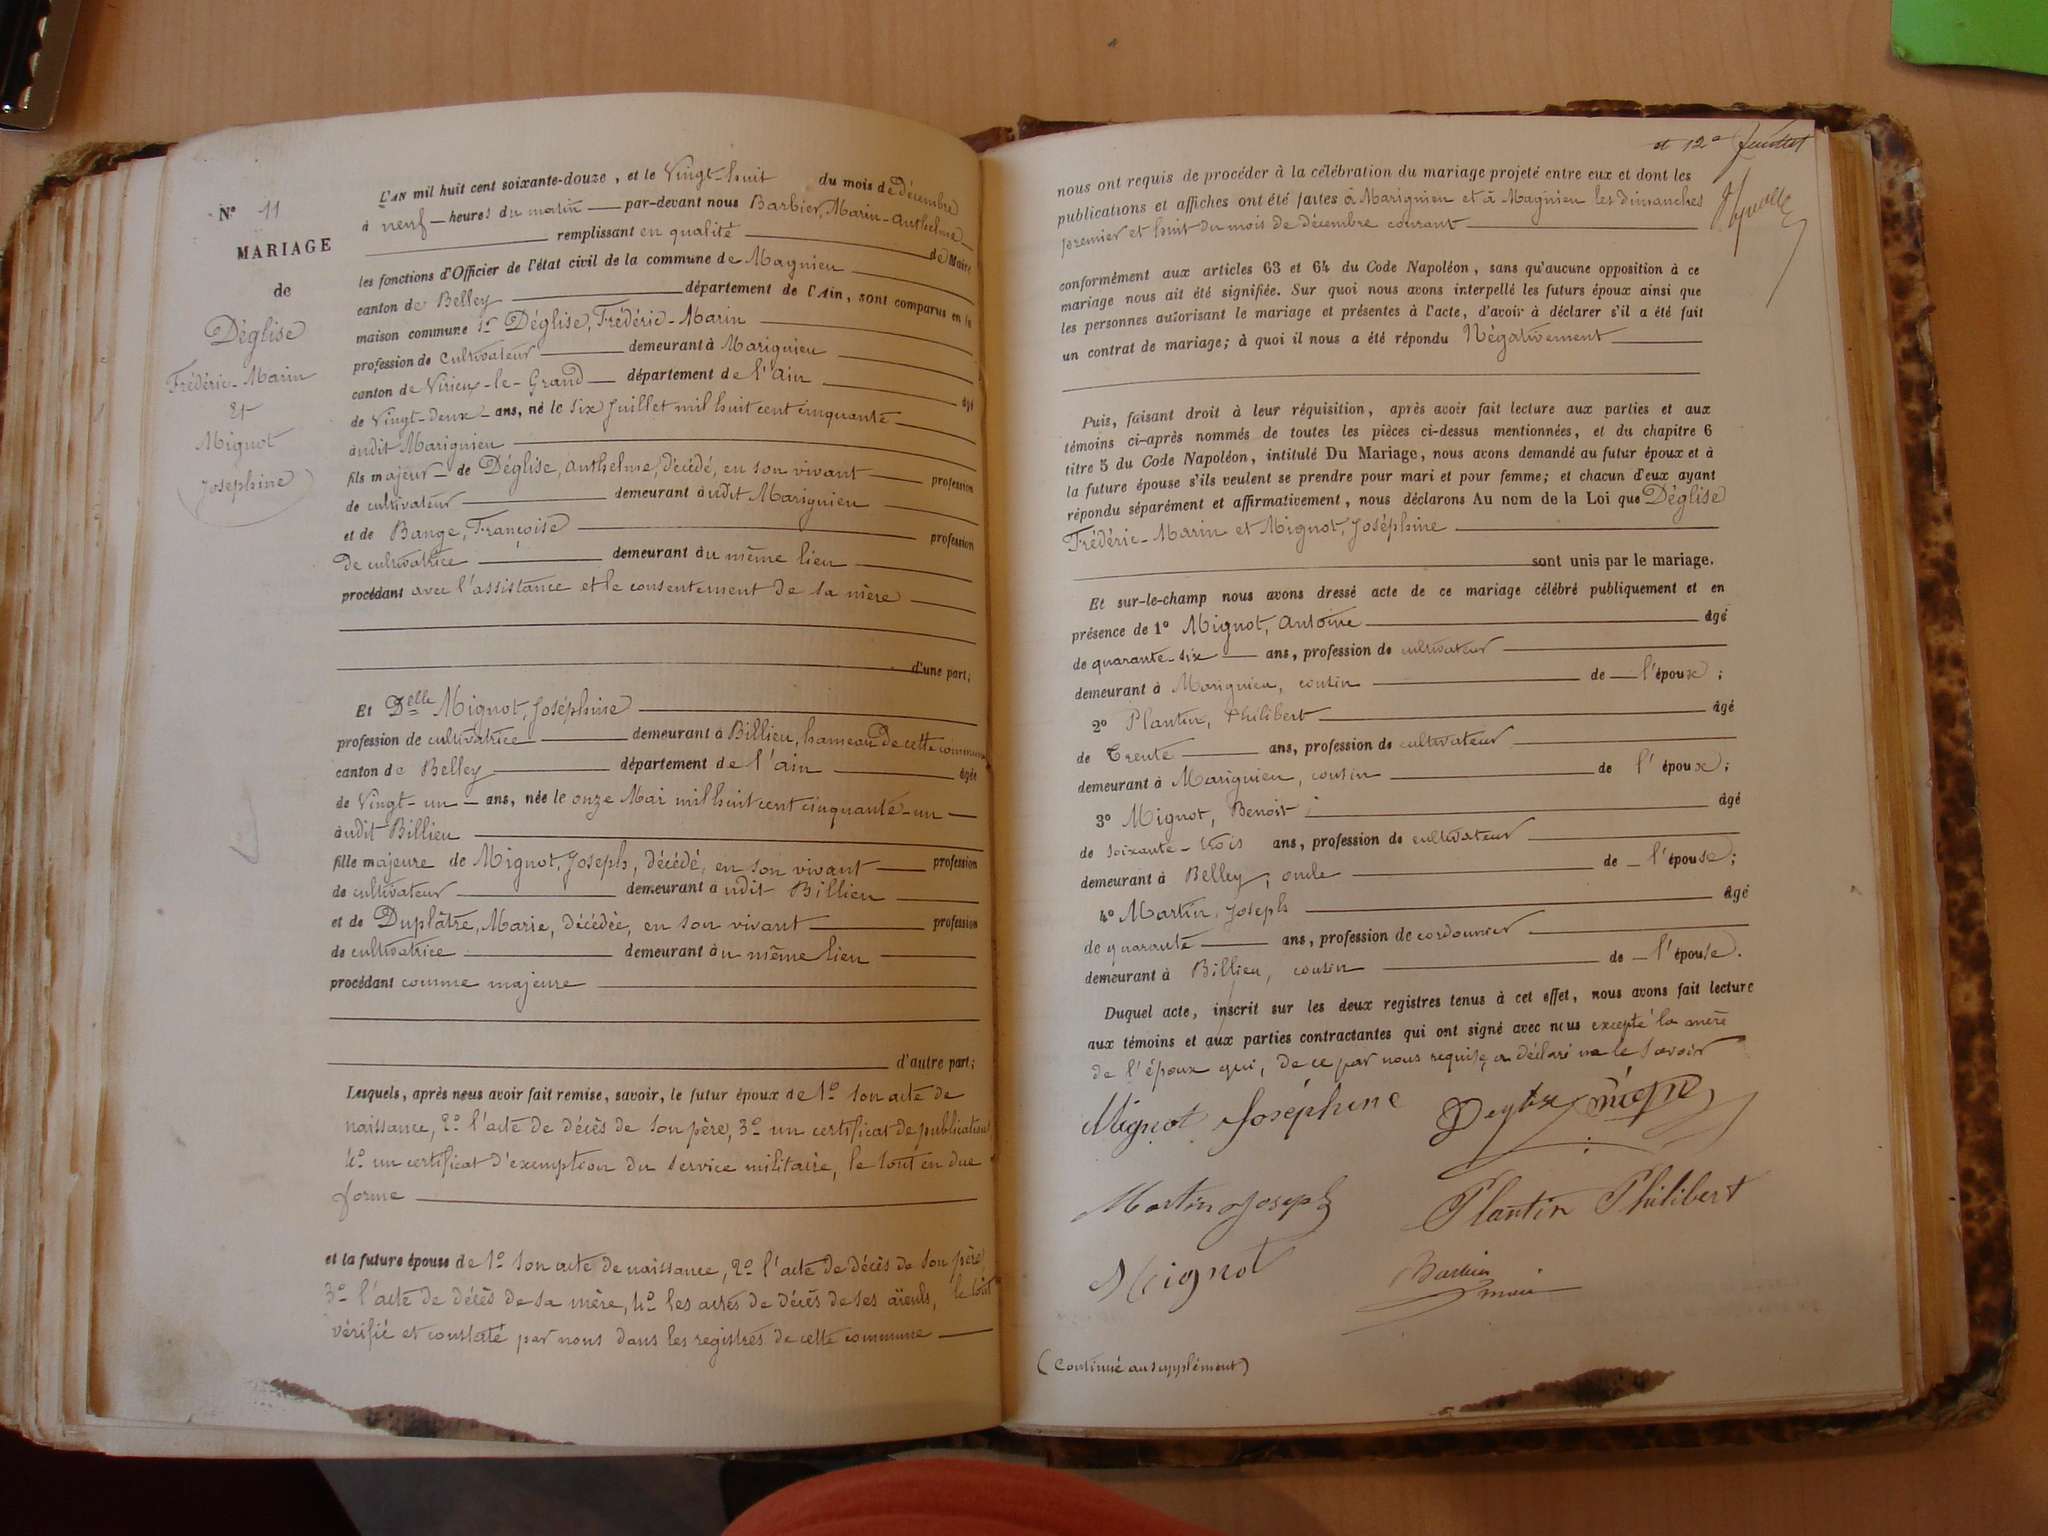 N° 11
MARIAGE
de
Déglise
Frédéric-Marin
Et
Mignot
Joséphine
L'AN mil huit cent soixante-douze, et le Vingt-huit du mois de Décembre
à neuf heures du matin par-devant nous Barbier, Marin-Anthelme
remplissant en qualité de Maire
les fonctions d'Officier de l'état civil de la commune de Magnieu
canton de Belley département de l'Ain, sont comparus en la
maison commune Sr Déglise, Frédéric-Marin
profession de Cultivateur demeurant à Marignieu
canton de Virieu-le-Grand département de l'Ain âgé
de Vingt-deux ans, né le six Juillet mil huit cent cinquante
àudit Marignieu
fils majeur de Déglise, Anthelme, décédé, en son vivant profession
de cultivateur demeurant àudit Marignieu
et de Bange, Françoise profession
De cultivatrice demeurant àu même lieu
procédant avec l'assistance et le consentement de sa mère
d'une part;
Et Delle Mignot, Joséphine
profession de cultivatrice demeurant à Billieu, hameau de cette commune
canton de Belley département de l'Ain âgée
de Vingt-un ans, née le onze Mai mil huit cent cinquante-un
àudit Billieu
fille majeure de Mignot, Joseph, décédé, en son vivant profession
de cultivateur demeurant àudit Billieu
et de Duplâtre, Marie, décédée, en son vivant profession
de cultivatrice demeurant àu même lieu
procédant comme majeure
d'autre part;
Lesquels, après nous avoir fait remise, savoir, le futur époux de 1° son acte de
naissance, 2° l'acte de décès de son père, 3° un certificat de publication
4° un certificat d'exemption du service militaire, le tout en due
forme
et la future épouse de 1° son acte de naissance, 2° l'acte de décès de son père,
3° l'acte de décès de sa mère, 4° les actes de décès de ses aïeuls, le tout
vérifié et constaté par nous dans les registres de cette commune
et 12e feuillet
nous ont requis de procéder à la célébration du mariage projeté entre eux et dont les
publications et affiches ont été faites à Marignieu et à Magnieu les dimanches
premier et huit du mois de décembre courant
conformément aux articles 63 et 64 du Code Napoléon, sans qu'aucune opposition à ce
mariage nous ait été signifiée. Sur quoi nous avons interpellé les futurs époux ainsi que
les personnes autorisant le mariage et présentes à l'acte, d'avoir à déclarer s'il a été fait
un contrat de mariage; à quoi il nous a été répondu Négativement
Puis, faisant droit à leur réquisition, après avoir fait lecture aux parties et aux
témoins ci-après nommés de toutes les pièces ci-dessus mentionnées, et du chapitre 6
titre 5 du Code Napoléon, intitulé Du Mariage, nous avons demandé au futur époux et à
la future épouse s'ils veulent se prendre pour mari et pour femme; et chacun d'eux ayant
répondu séparément et affirmativement, nous déclarons Au nom de la Loi que Déglise
Frédéric-Marin et Mignot, Joséphine
sont unis par le mariage.
Et sur-le-champ nous avons dressé acte de ce mariage célébré publiquement et en
présence de 1° Mignot, Antoine âgé
de quarante-six ans, profession de cultivateur
demeurant à Marignieu, cousin de l'époux;
2° Plantin, Philibert âgé
de Trente ans, profession de cultivateur
demeurant à Marignieu, cousin de l'époux;
3° Mignot, Benoit âgé
de soixante-trois ans, profession de cultivateur
demeurant à Belley, oncle de l'épouse;
4° Martin, Joseph âgé
de quarante ans, profession de cordonnier
demeurant à Billieu, cousin de l'épouse.
Duquel acte, inscrit sur les deux registres tenus à cet effet, nous avons fait lecture
aux témoins et aux parties contractantes qui ont signé avec nous excepté la mère
de l'époux qui, de ce par nous requise, a déclaré ne le savoir
Mignot Joséphine
Martin Joseph Plantin Philibert
Mignot Barbier
maire
(Continué au supplément)